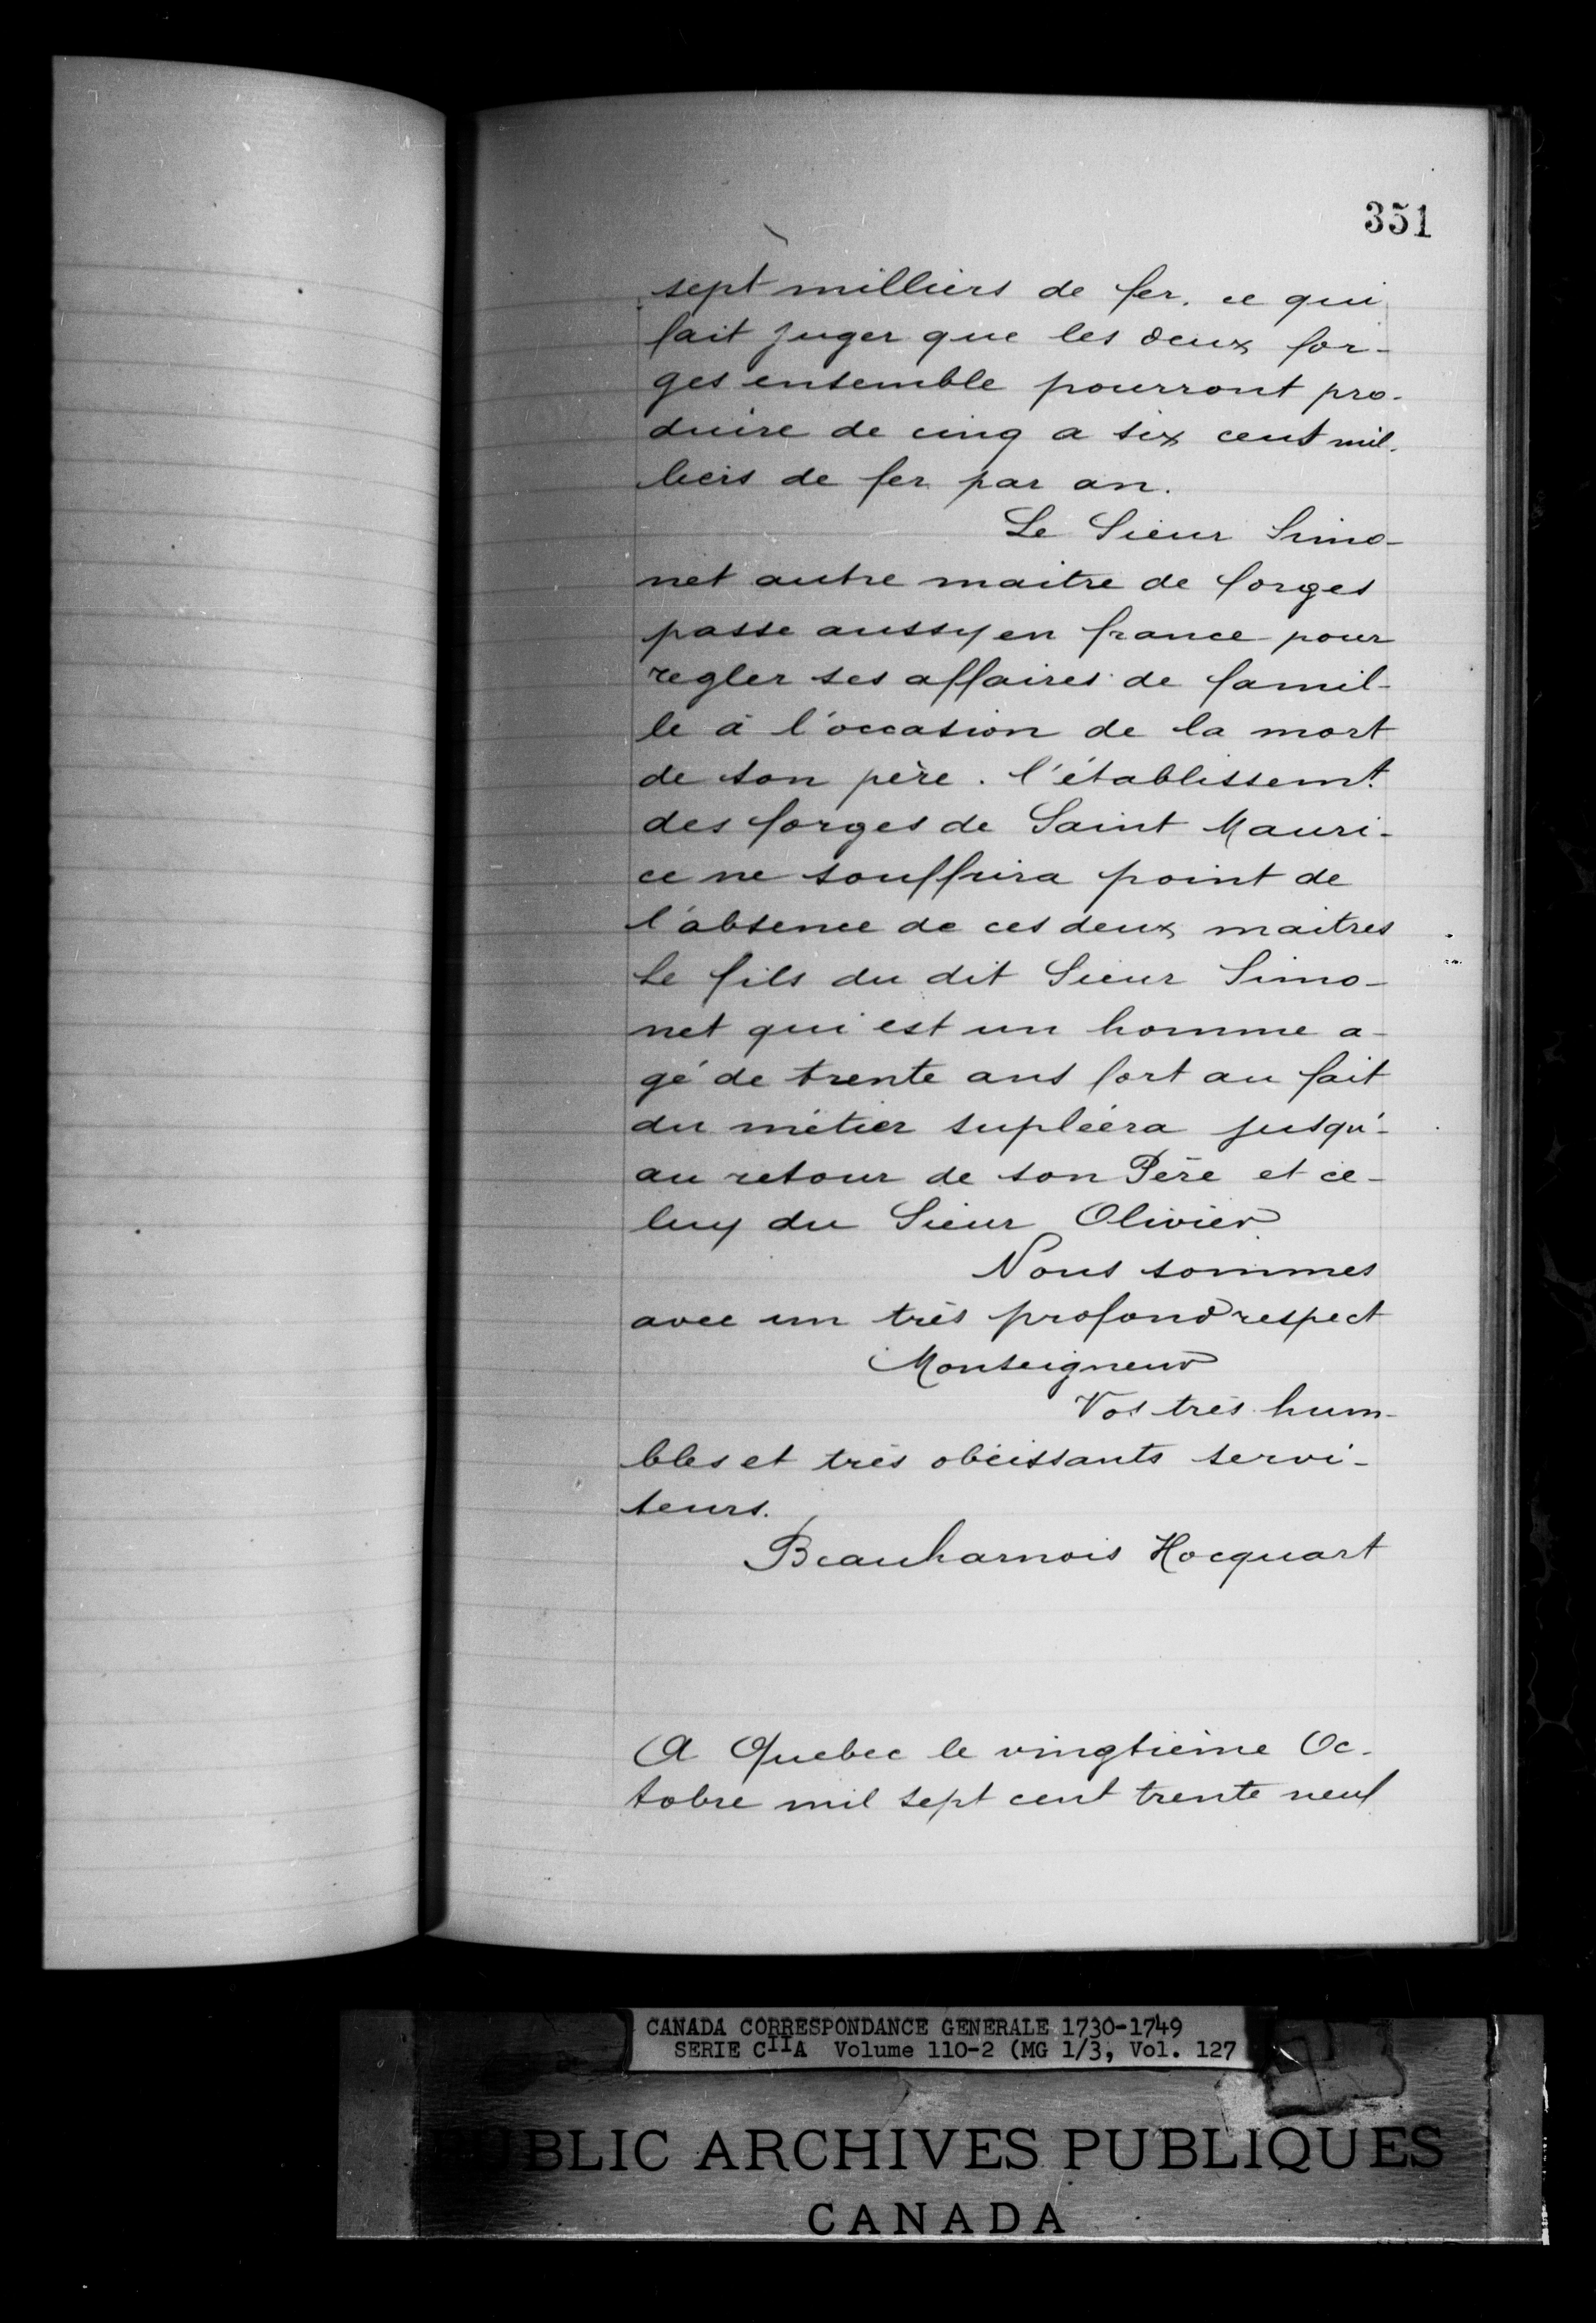 351
sept milliers de fer. ce qui
fait juger que les deux for-
ges ensemble pourront pro-
duire de cinq a six cent mil-
liers de fer par an.
Le Sieur Simo-
net autre maitre de forges
passe aussy en france pour
regler ses affaires de famil-
le à l'occasion de la mort
de son père. l'établissemt.
des forges de Saint Mauri-
ce ne souffrira point de
l'absence de ces deux maitres
Le fils du dit Sieur Simo-
net qui est un homme a-
gé de trente ans fort au fait
du métier supléera jusqu'-
au retour de son Père et ce-
luy du Sieur Olivier
Nous sommes
avec un très profond respect
Monseigneur
Vos très hum-
bles et très obéissants servi-
teurs.
Beauharnois Hocquart
A Quebec le vingtième Oc-
tobre mil sept cent trente neuf
CANADA CORRESPONDANCE GENERALE 1730-1749
SERIE CIIA Volume 110-2 (MG 1/3, Vol. 127
PUBLIC ARCHIVES PUBLIQUES
CANADA